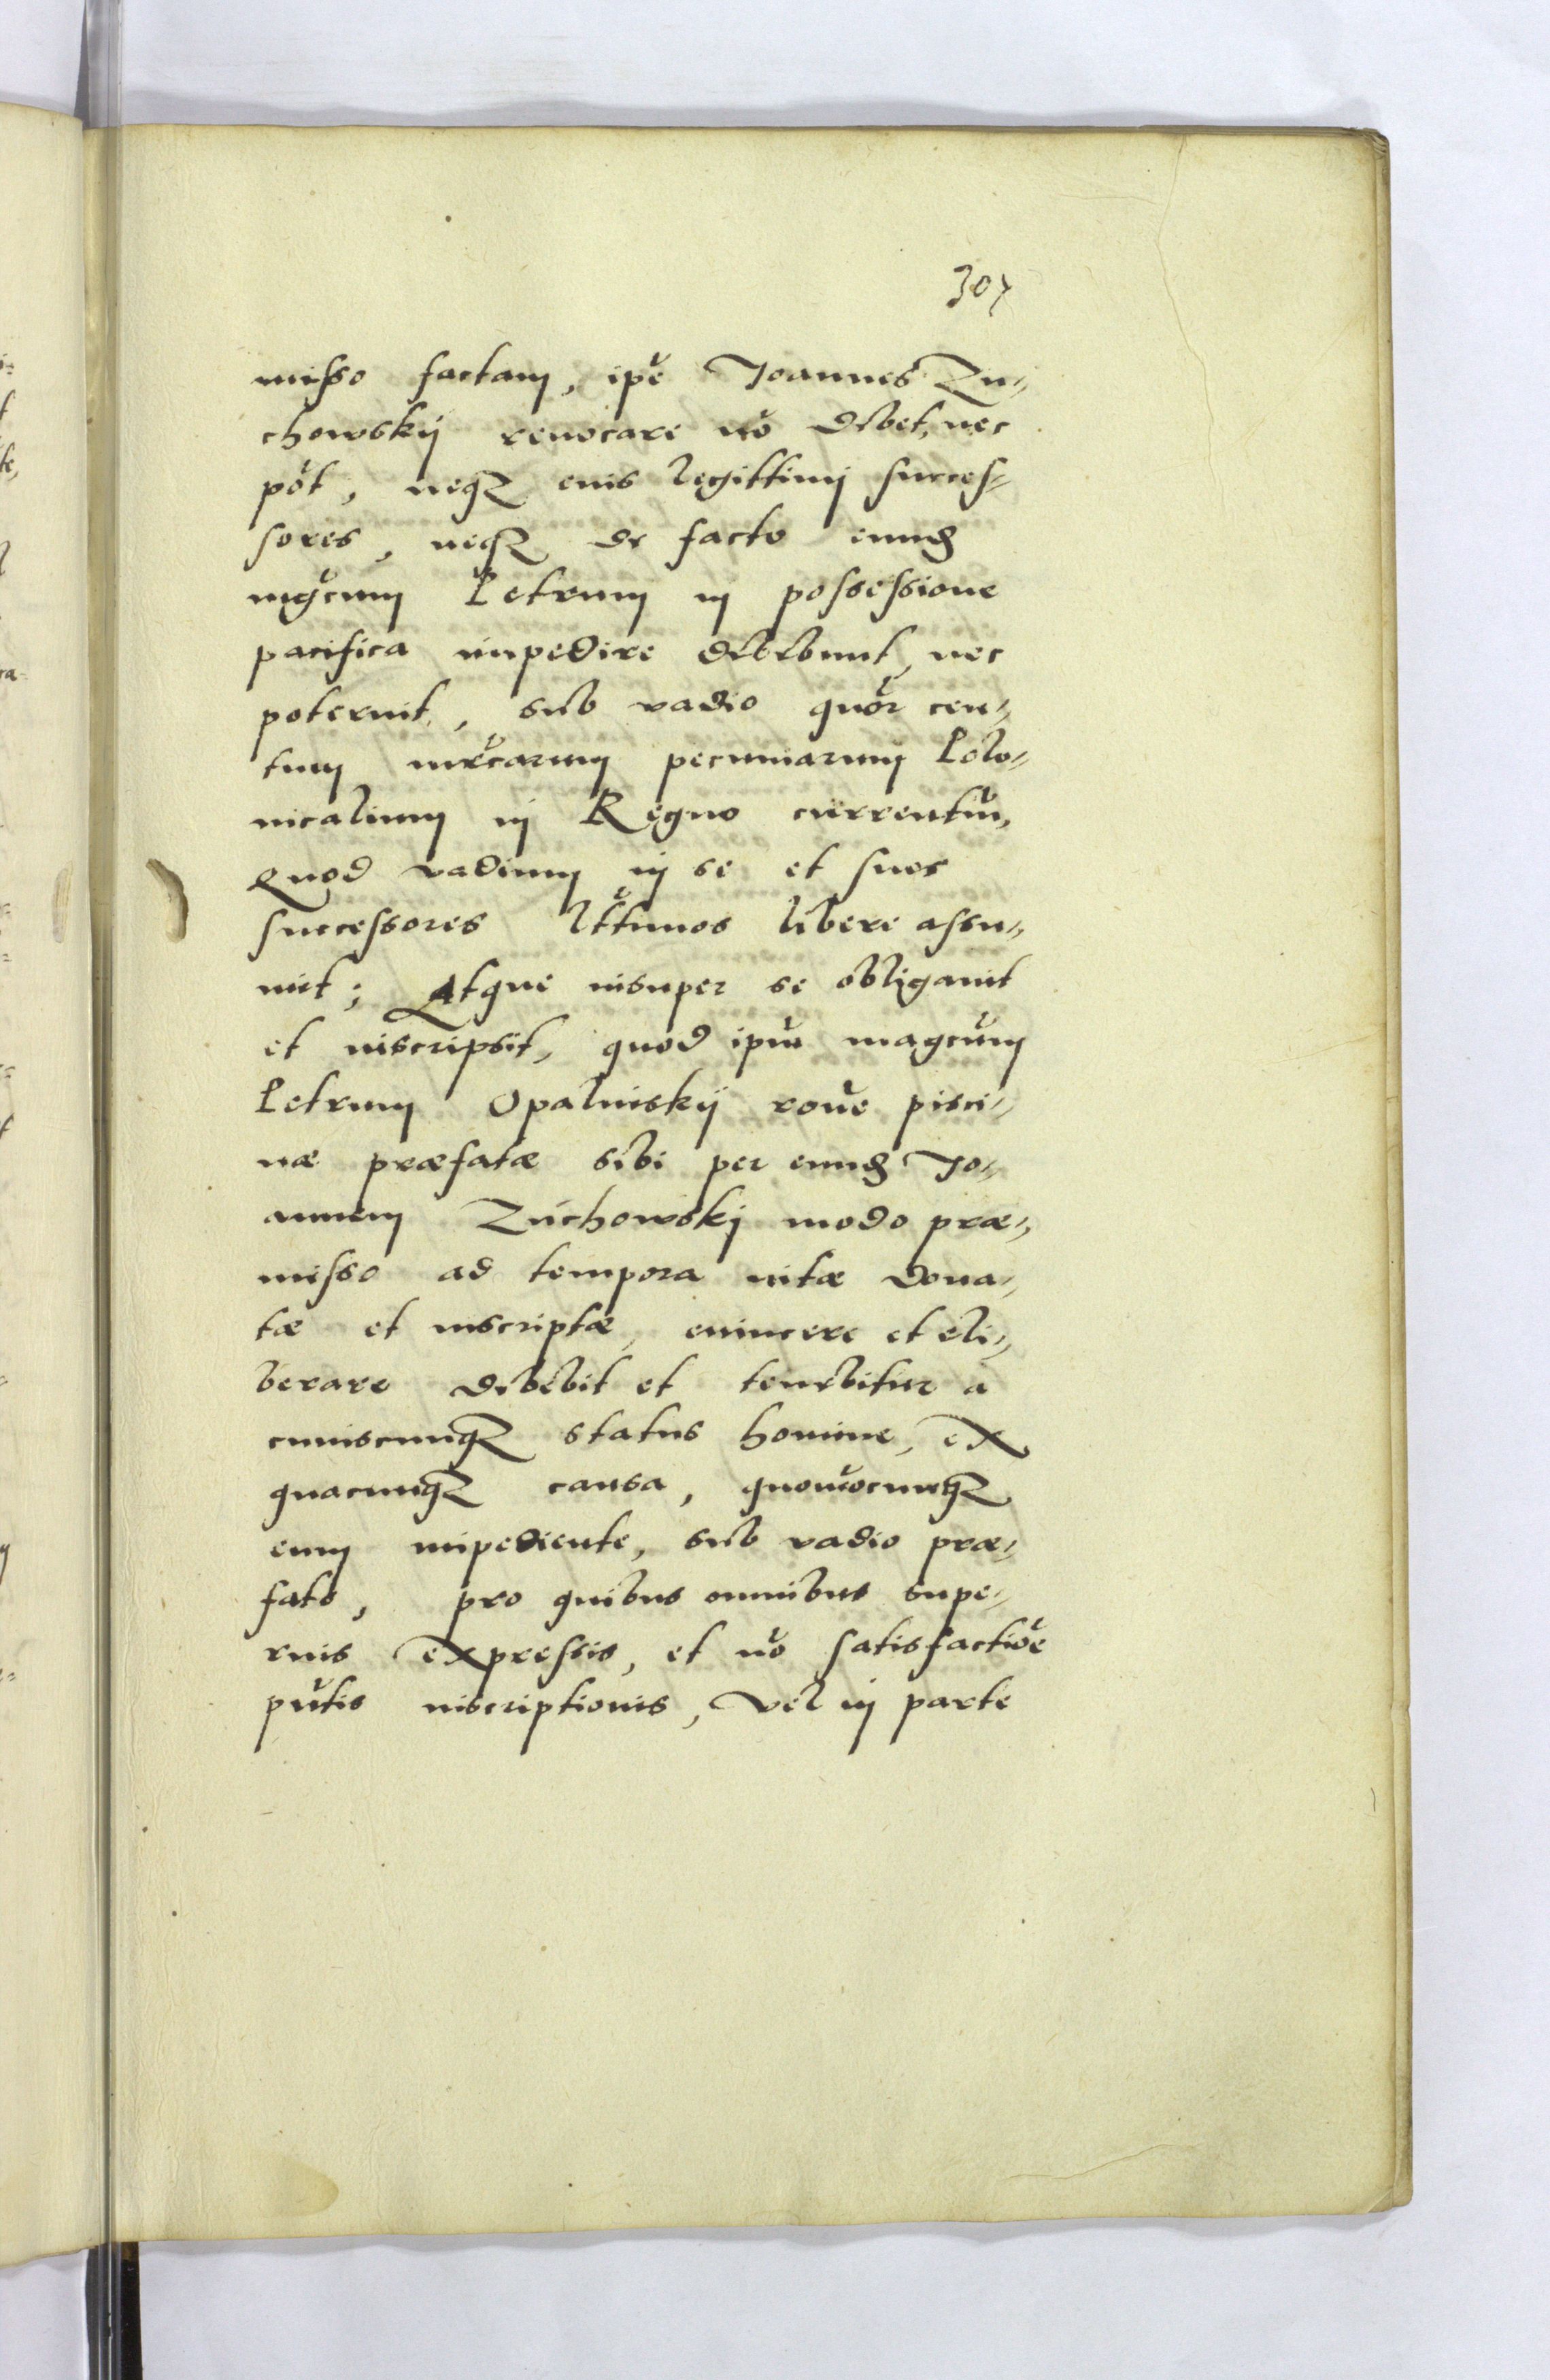 307
misso factam, ipẽ Joannes Zu-
chowskij reuocare nõ debet, nec
põt, neqꝫ euis legittimi succes-
sores, neqꝫ de facto eundꝫ
mgc̃um Petrum in possessione
pacifica impedire debebunt, nec
poterint, sub vadio quõr cen-
tum mrc̃arum pecuniarum Polo-
nicalium in Regno currentiũ,
Quod vadium in se et suos
successores lt̃timos libere assu-
mit; Atque insuper se obligauit
et inscripsit, quod ipũ magcũm
Petrum Opalinskij rõne pisci-
næ præfatæ sibi per eundꝫ Jo-
annem Zuchowskj modo præ-
misso ad tempora vitæ dona-
tæ et inscriptæ, euincere et eli-
berare debebit et tenebitur a
cuiuscunqꝫ status homine, ex
quacunqꝫ causa, quouõcunqꝫ
eum impediente, sub vadio præ-
fato, pro quibus omnibus supe-
rius expressis, et nõ satisfactiõe
pñtis inscriptionis, vel in parte